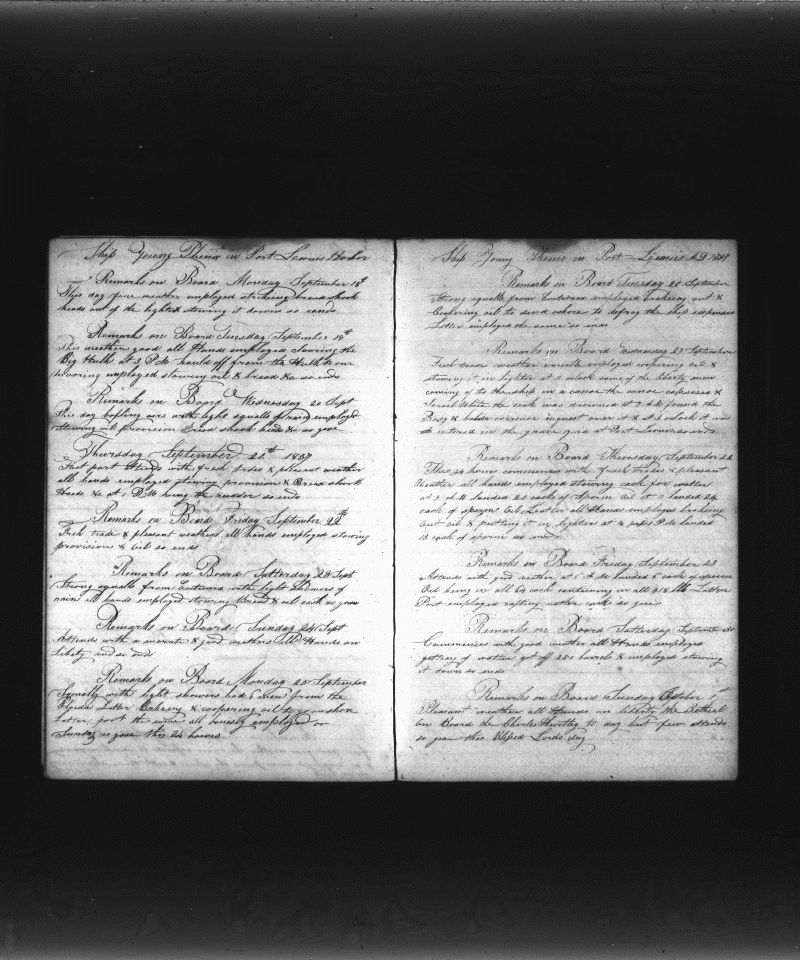 Ship Young Phenix in Port Leweis Harbor
Remarks on Board Monday September 18th
This day fine weather employed striking bread shook
heads out of the lighter & stowing it down so ends
Remarks on Board Tuesday September 19th
This weather good all Hands employed the
Big Hulks at 2 P M hauld off from the Hulk to our
mooring employed stowing oil & bread &c so ends
Remarks on Board Wednesday 20 Sept
This day airs with light squalls of rain employed
stowing oil provision bread shook heads &c so goes
Thursday September 21th 1837
First part Attends with fresh trades & pleasant weather
all hands employed stowing provision & Bread shook
Heads &c at 1 P M hung the rudder so ends
Remarks on Board Friday September 22th
Fresh trade & pleasant weather all hands employed stowing
provision & Oil so ends
Remarks on Board Satterday 23 Sept
Strong squalls from eastward with light Showers of
rain all hands employed stowing bread & oil cask so goes
Remarks on Board Sunday 24 Sept
Attends with a & good weather All Hands on
Liberty and so ends
Remarks on Board Monday 25 September
Squally with light showers had from the
Latter & coopering oil to on shore
Latter part the same all busily employed
Sunday so goes this 24 hours
Ship Young Phenix in Port Leweis AD 1837
Remarks on Board Tuesday 26 September
Strong squalls from Eastward employed breaking out &
Coopering oil to send ashore to defray the ship expenses
Latter employed the same so ends
Remarks on Board Wednesday 27 September
Fresh trade weather variable employed coopering oil &
stowing it in lighter at 11 oclock some of the liberty men
coming of to the ship in a canoe the canoe capsised &
the cook was drowned at 2 P M found the
Body & held inquest over it & at 5 oclock it was
intered in the grave yard at Port Leweis so ends
Remarks on Board Thursday September 28
This 24 hours commences with fresh trades & pleasant
Weather all hands employed stowing cask for water
at 9 A M landed 21 casks of Sperm Oil at 11 landed 24
cask of sperm Oil Latter all Hands employed breaking
out oil & putting it in lighter at 4 P M landed
18 cask of sperm so ends
Remarks on Board Friday September 29
Attends with good weather at 6 A M landed 6 cask of sperm
Oil being in all 69 cask containing in all 318 bbls Latter
Part employed rafting water cask so goes
Remarks on Board Satterday September 30
Commences with good weather all Hands employed
getting of water got off 250 barrels & employed stowing
it down so ends
Remarks on Board Sunday October 1st
Pleasant weather all Hands on liberty the Bethel
on Board the to day but few attends
so goes this Blessed Lords day